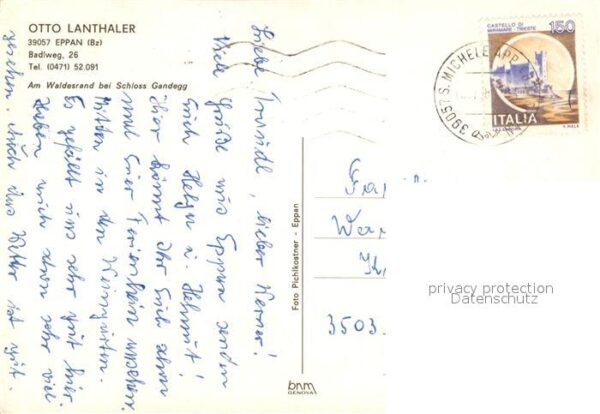 OTTO LANTHALER
39057 EPPAN (Bz)
Badlweg, 26
Tel. (0471) 52.091
Am Waldesrand bei Schloss Gandegg
Liebe Traudl, lieber Werner!
Viele Grüße aus Eppan senden
Euch Helga u. Helmut!
Hier könnt Ihr Euch schon
mal Euer Ferienheim ansehen.
Mitten in den Weingärten.
Es gefällt uns sehr gut hier.
Haben auch schon sehr viel
gesehen. Auch das Wetter ist gut.
Foto Pichlkostner - Eppan
bnm
GENOVA
CASTELLO DI
MIRAMARE - TRIESTE
150
ITALIA
39057 S. MICHELE APP
Fa
We
3503
privacy protection
Datenschutz